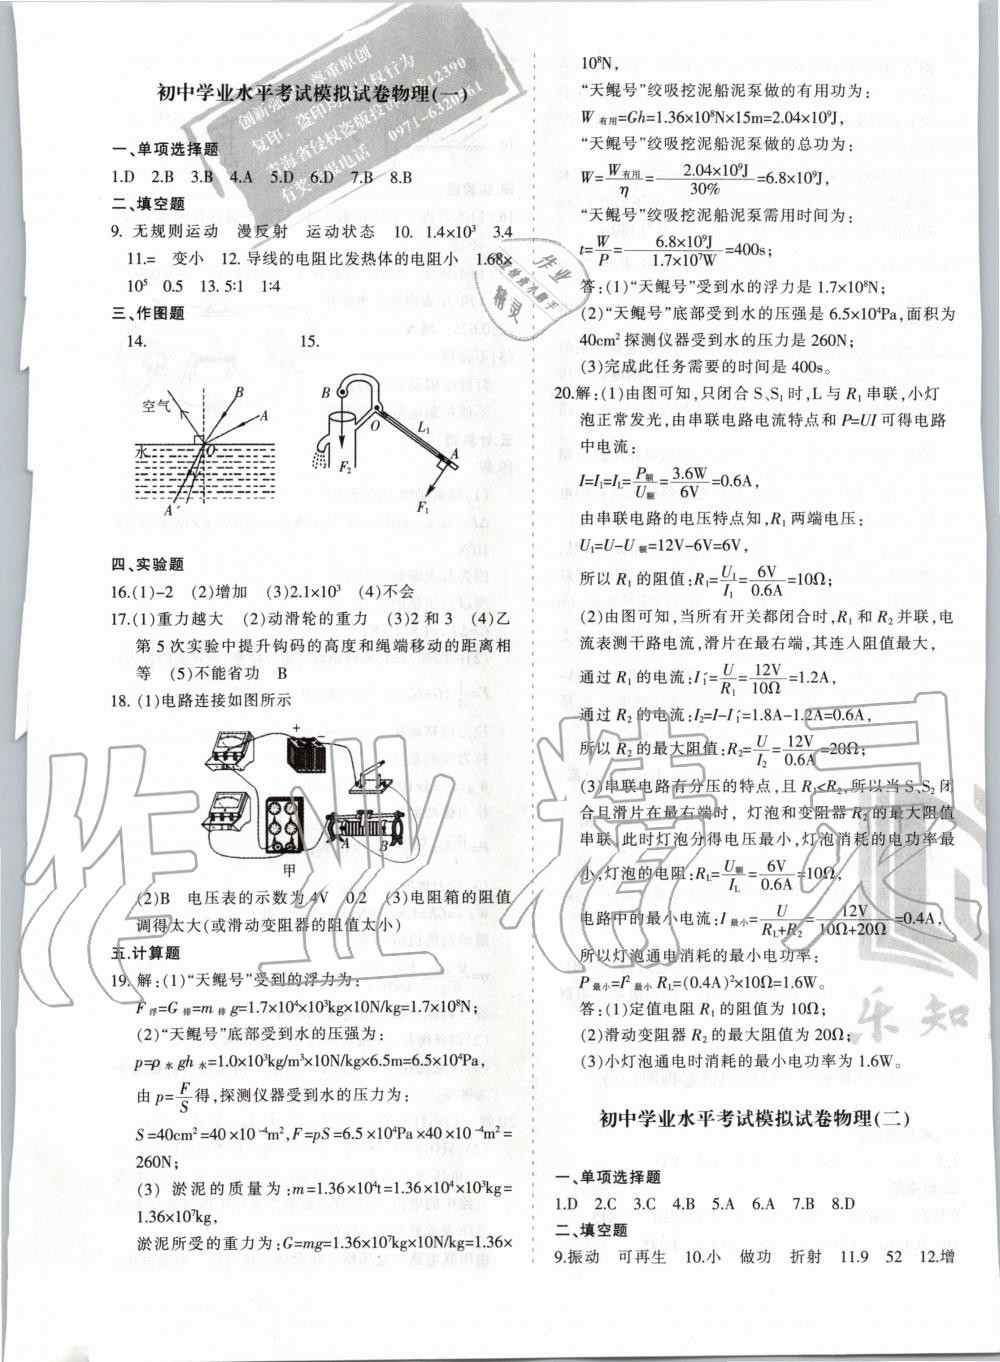 初中学业水平考试模拟试卷物理(一)
一、单项选择题
1.D 2.B 3.B 4.A 5.D 6.D 7.B 8.B
二、填空题
9. 无规则运动 漫反射 运动状态 10. 1.4×10³ 3.4
11.= 变小 12. 导线的电阻比发热体的电阻小 1.68×
10⁵ 0.5 13. 5∶1 1∶4
三、作图题
14. 15.
空气 B A
水 O
A′
B O L₁ A
F₂ F₁
四、实验题
16.(1)-2 (2)增加 (3)2.1×10³ (4)不会
17.(1)重力越大 (2)动滑轮的重力 (3)2 和 3 (4)乙
第 5 次实验中提升钩码的高度和绳端移动的距离相
等 (5)不能省功 B
18. (1)电路连接如图所示
+ −
A B
甲
(2)B 电压表的示数为 4V 0.2 (3)电阻箱的阻值
调得太大(或滑动变阻器的阻值太小)
五、计算题
19. 解:(1)“天鲲号”受到的浮力为:
F浮=G排=m排g=1.7×10⁴×10³kg×10N/kg=1.7×10⁸N;
(2)“天鲲号”底部受到水的压强为:
p=ρ水gh水=1.0×10³kg/m³×10N/kg×6.5m=6.5×10⁴Pa,
由 p=F/S得,探测仪器受到水的压力为:
S=40cm²=40×10⁻⁴m²,F=pS=6.5×10⁴Pa×40×10⁻⁴m²=
260N;
(3) 淤泥的质量为:m=1.36×10⁴t=1.36×10⁴×10³kg=
1.36×10⁷kg,
淤泥所受的重力为:G=mg=1.36×10⁷kg×10N/kg=1.36×
10⁸N,
“天鲲号”绞吸挖泥船泥泵做的有用功为:
W有用=Gh=1.36×10⁸N×15m=2.04×10⁹J,
“天鲲号”绞吸挖泥船泥泵做的总功为:
W=W有用/η=2.04×10⁹J/30%=6.8×10⁹J,
“天鲲号”绞吸挖泥船泥泵需用时间为:
t=W/P=6.8×10⁹J/1.7×10⁷W=400s;
答:(1)“天鲲号”受到水的浮力是 1.7×10⁸N;
(2)“天鲲号”底部受到水的压强是 6.5×10⁴Pa,面积为
40cm² 探测仪器受到水的压力是 260N;
(3)完成此任务需要的时间是 400s。
20.解:(1)由图可知,只闭合 S、S₁ 时,L 与 R₁ 串联,小灯
泡正常发光,由串联电路电流特点和 P=UI 可得电路
中电流:
I=I₁=I₁=P额/U额=3.6W/6V=0.6A,
由串联电路的电压特点知,R₁ 两端电压:
U₁=U-U额=12V-6V=6V,
所以 R₁ 的阻值:R₁=U₁/I₁=6V/0.6A=10Ω;
(2)由图可知,当所有开关都闭合时,R₁ 和 R₂ 并联,电
流表测干路电流,滑片在最右端,其连入阻值最大,
通过 R₁ 的电流:I₁′=U/R₁=12V/10Ω=1.2A,
通过 R₂ 的电流:I₂=I-I₁′=1.8A-1.2A=0.6A,
所以 R₂ 的最大阻值:R₂=U/I₂=12V/0.6A=20Ω;
(3)串联电路有分压的特点,且 R₁<R₂,所以当 S、S₂ 闭
合且滑片在最右端时, 灯泡和变阻器 R₂ 的最大阻值
串联,此时灯泡分得电压最小,灯泡消耗的电功率最
小,灯泡的电阻:RL=U额/IL=6V/0.6A=10Ω,
电路中的最小电流:I最小=U/R₁+R₂=12V/10Ω+20Ω=0.4A,
所以灯泡的最小电功率:
P最小=I²最小RL=(0.4A)²×10Ω=1.6W。
答:(1)定值电阻 R₁ 的阻值为 10Ω;
(2)滑动变阻器 R₂ 的最大阻值为 20Ω;
(3)小灯泡通电时消耗的最小电功率为 1.6W。
初中学业水平考试模拟试卷物理(二)
一、单项选择题
1.D 2.C 3.C 4.B 5.A 6.A 7.B 8.D
二、填空题
9.振动 可再生 10.小 做功 折射 11.9 52 12.增
作业精灵
乐知